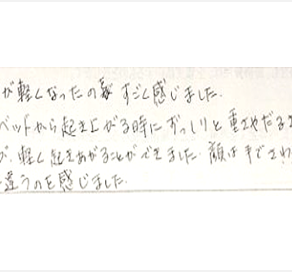 が軽くなったの すごく感じました.
ベッドから起き上がる時にずっしりと重さやだる
が、軽く起きあがることができました. 顔は手でさわ
違うのを感じました.